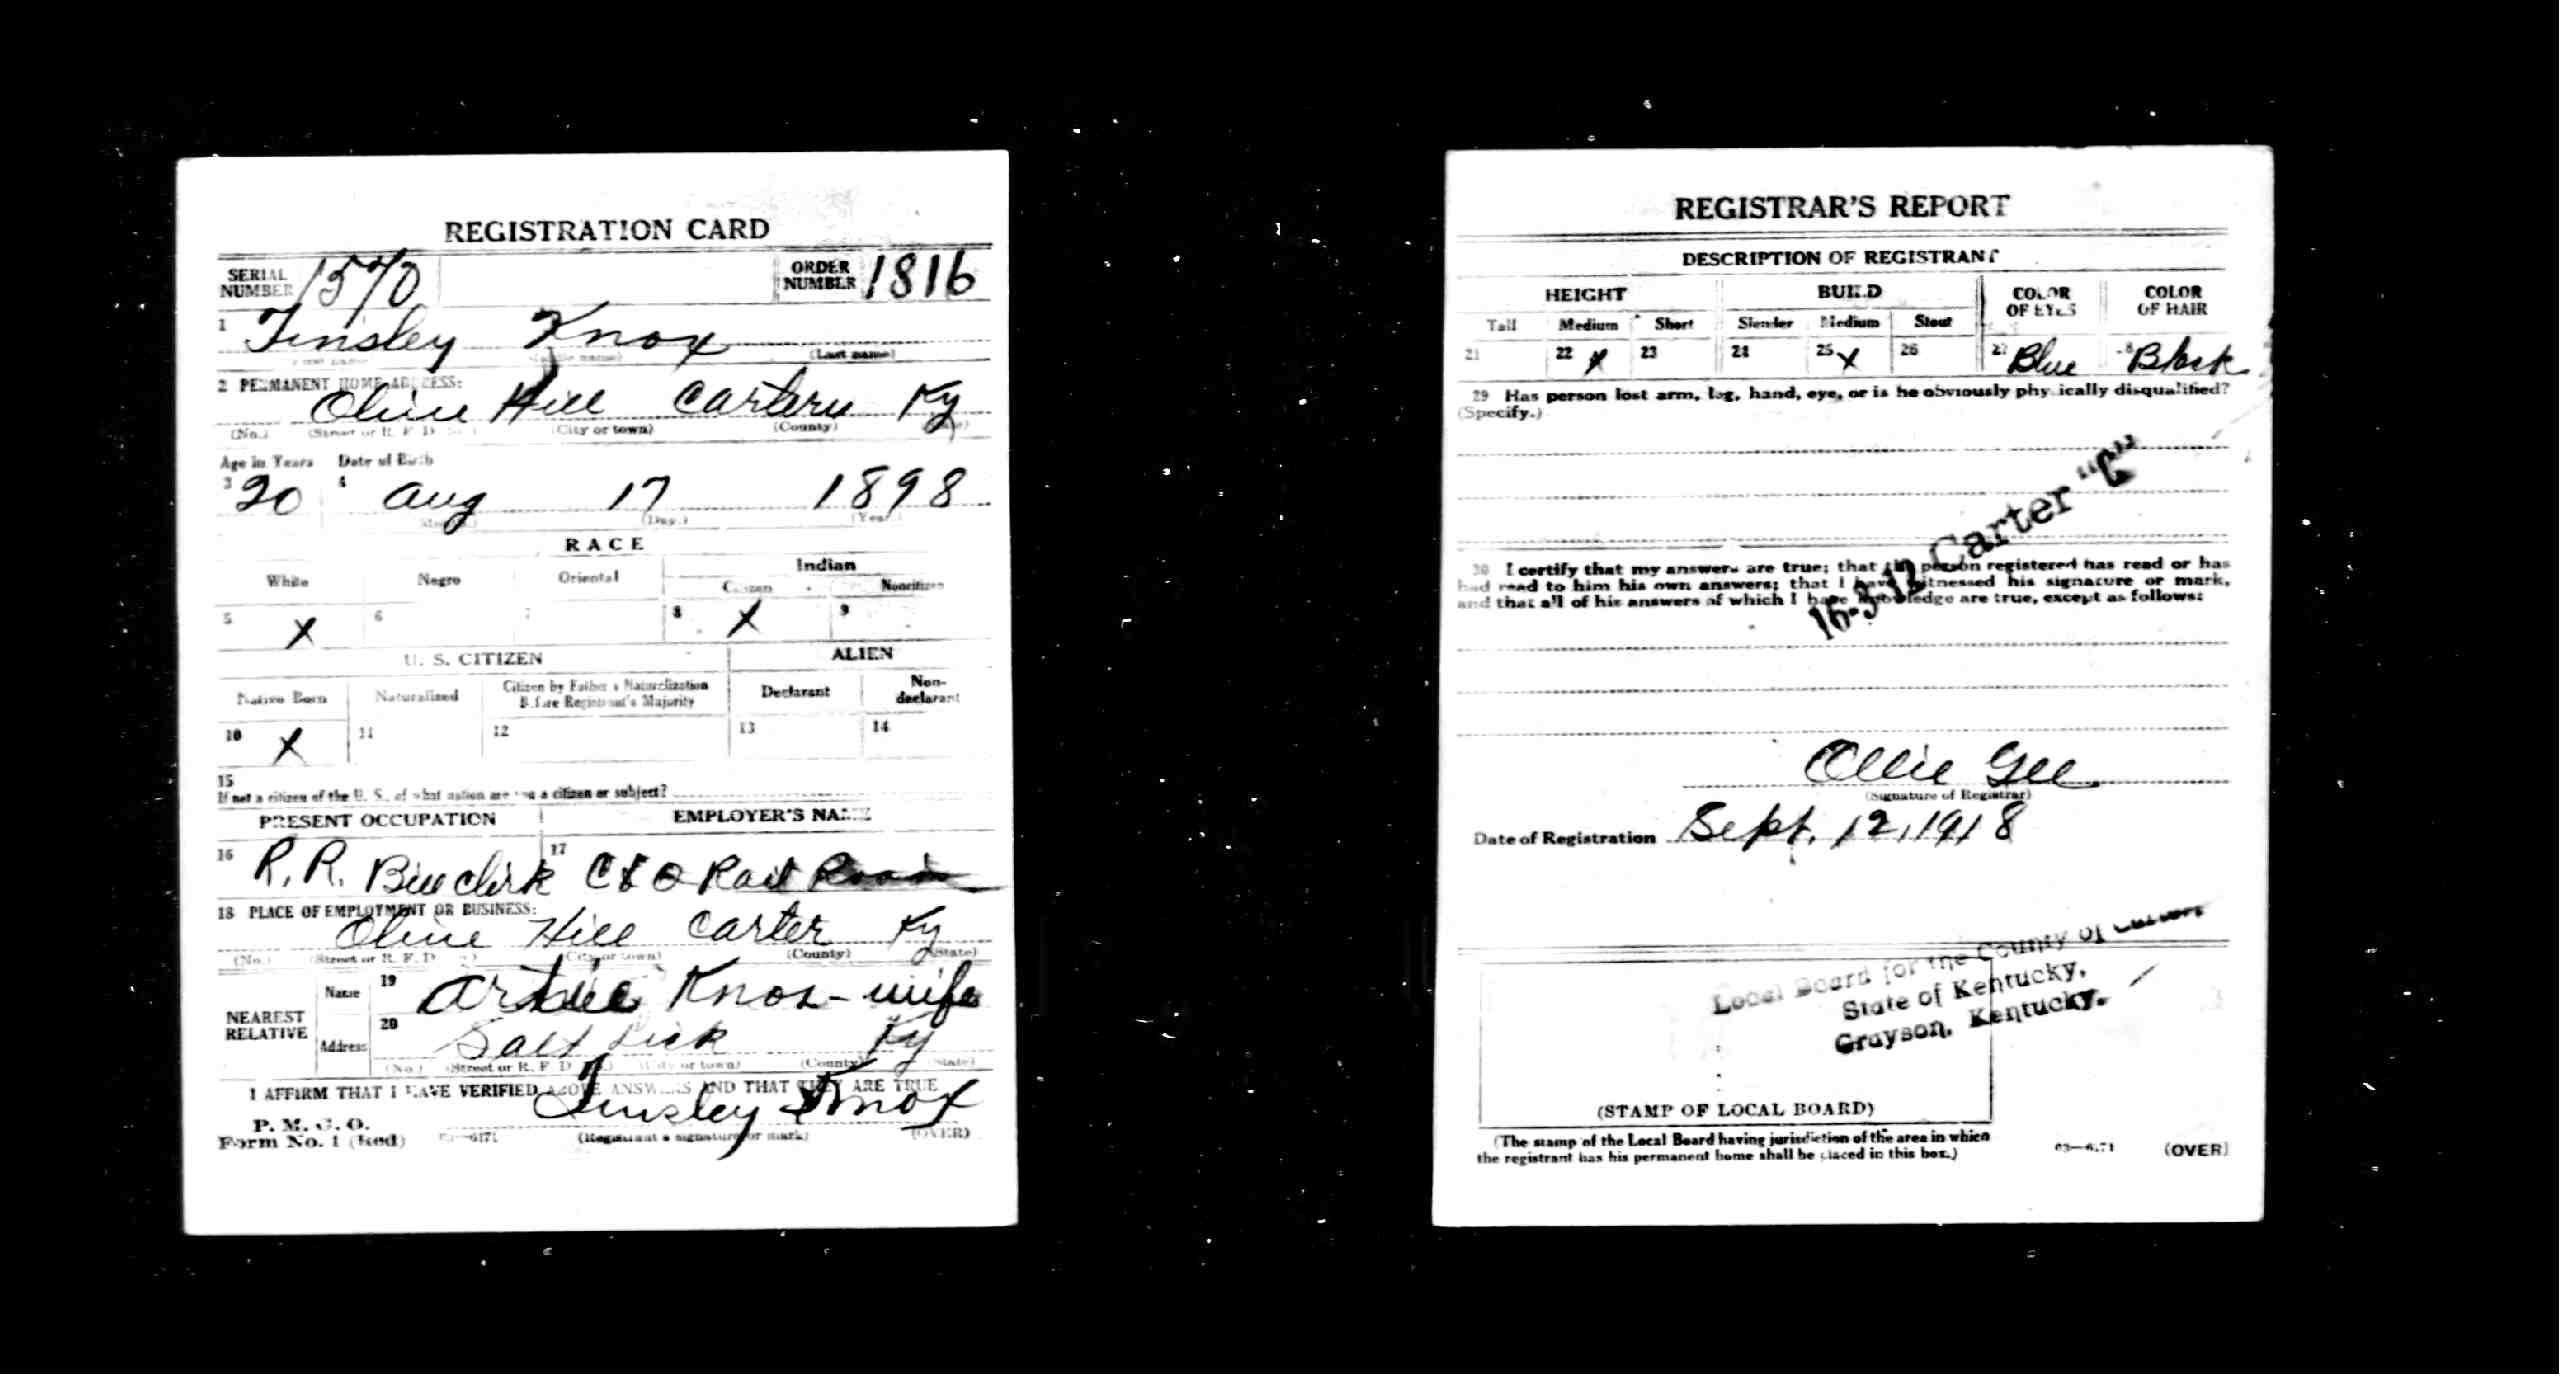 REGISTRATION CARD
SERIAL NUMBER 1570 ORDER NUMBER 1816
1 Tinsley Knox
(Last name)
2 PERMANENT HOME ADDRESS:
Olive Hill Carter Ky
(No.) (Street or R. F. D. No.) (City or town) (County) (State)
Age in Years Date of Birth
3 20 4 Aug 17 1898
(Month.) (Day.) (Year.)
RACE
White Negro Oriental Indian
Citizen Noncitizen
5 X 6 7 8 X 9
U. S. CITIZEN ALIEN
Native Born Naturalized Citizen by Father's Naturalization Before Registrant's Majority Declarant Non-declarant
10 X 11 12 13 14
15
If not a citizen of the U. S., of what nation are you a citizen or subject?
PRESENT OCCUPATION EMPLOYER'S NAME
16 R.R. Bill clerk 17 C & O Rail Road
18 PLACE OF EMPLOYMENT OR BUSINESS:
Olive Hill Carter Ky
(No.) (Street or R. F. D. No.) (City or town) (County) (State)
NEAREST RELATIVE Name 19 Knox - wife
Address 20 Salt Lick Ky
(No.) (Street or R. F. D. No.) (City or town) (County) (State)
I AFFIRM THAT I HAVE VERIFIED ABOVE ANSWERS AND THAT THEY ARE TRUE
P. M. G. O.
Form No. 1 (Red) 03—6171 Tinsley Knox
(Registrant's signature or mark) (OVER)
REGISTRAR'S REPORT
DESCRIPTION OF REGISTRANT
HEIGHT BUILD COLOR OF EYES COLOR OF HAIR
Tall Medium Short Slender Medium Stout
21 22 X 23 24 25 X 26 27 Blue 28 Black
29 Has person lost arm, leg, hand, eye, or is he obviously physically disqualified?
(Specify.)
16-3-12 Carter "C"
30 I certify that my answers are true; that the person registered has read or has
had read to him his own answers; that I have witnessed his signature or mark,
and that all of his answers of which I have knowledge are true, except as follows:
Ollie Gee
(Signature of Registrar)
Date of Registration Sept. 12, 1918
Local Board for the County of Carter
State of Kentucky,
Grayson, Kentucky.
(STAMP OF LOCAL BOARD)
(The stamp of the Local Board having jurisdiction of the area in which
the registrant has his permanent home shall be placed in this box.)
03—6171 (OVER)